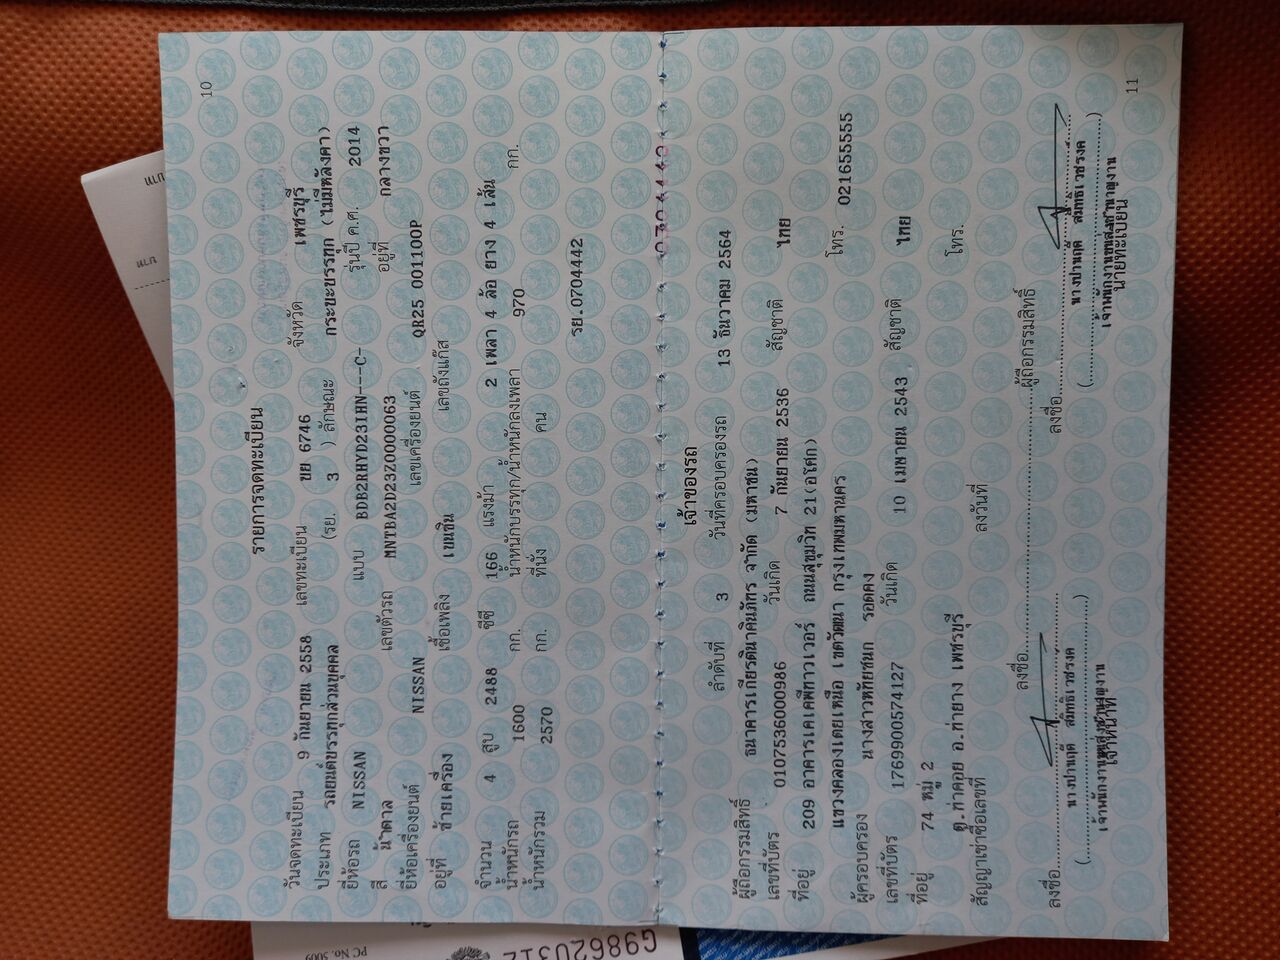 10
รายการจดทะเบียน
วันจดทะเบียน 9 กันยายน 2558 เลขทะเบียน ขย 6746 จังหวัด เพชรบุรี
ประเภท รถยนต์บรรทุกส่วนบุคคล (รย. 3 ) ลักษณะ กระบะบรรทุก (ไม่มีหลังคา)
ยี่ห้อรถ NISSAN แบบ BDB2RHYD23IHN---C- รุ่นปี ค.ศ. 2014
สี น้ำตาล เลขตัวรถ MNTBA2D23Z0000063 อยู่ที่ กลางขวา
ยี่ห้อเครื่องยนต์ NISSAN เลขเครื่องยนต์ QR25 001100P
อยู่ที่ ซ้ายเครื่อง เชื้อเพลิง เบนซิน เลขถังแก๊ส
จำนวน 4 สูบ 2488 ซีซี 166 แรงม้า 2 เพลา 4 ล้อ ยาง 4 เส้น
น้ำหนักรถ 1600 กก. น้ำหนักบรรทุก/น้ำหนักลงเพลา 970 กก.
น้ำหนักรวม 2570 กก. ที่นั่ง คน
รย.0704442
เจ้าของรถ
ลำดับที่ 3 วันที่ครอบครองรถ 13 ธันวาคม 2564
ผู้ถือกรรมสิทธิ์ ธนาคารเกียรตินาคินภัทร จำกัด (มหาชน)
เลขที่บัตร 0107536000986 วันเกิด 7 กันยายน 2536 สัญชาติ ไทย
ที่อยู่ 209 อาคารเคเคพีทาวเวอร์ ถนนสุขุมวิท 21(อโศก)
แขวงคลองเตยเหนือ เขตวัฒนา กรุงเทพมหานคร โทร. 021655555
ผู้ครอบครอง นางสาวหทัยชนก รอดคง
เลขที่บัตร 1769900574127 วันเกิด 10 เมษายน 2543 สัญชาติ ไทย
ที่อยู่ 74 หมู่ 2
ต.ท่าคอย อ.ท่ายาง เพชรบุรี โทร.
สัญญาเช่าซื้อเลขที่ ลงวันที่
ลงชื่อ ผู้ถือกรรมสิทธิ์
ลงชื่อ ลงชื่อ
( นางปานฤดี สมิทธิเวชรงค์ ) ( นางปานฤดี สมิทธิเวชรงค์ )
เจ้าหน้าที่ นายทะเบียน
11
PC No. 5009
G9862U312